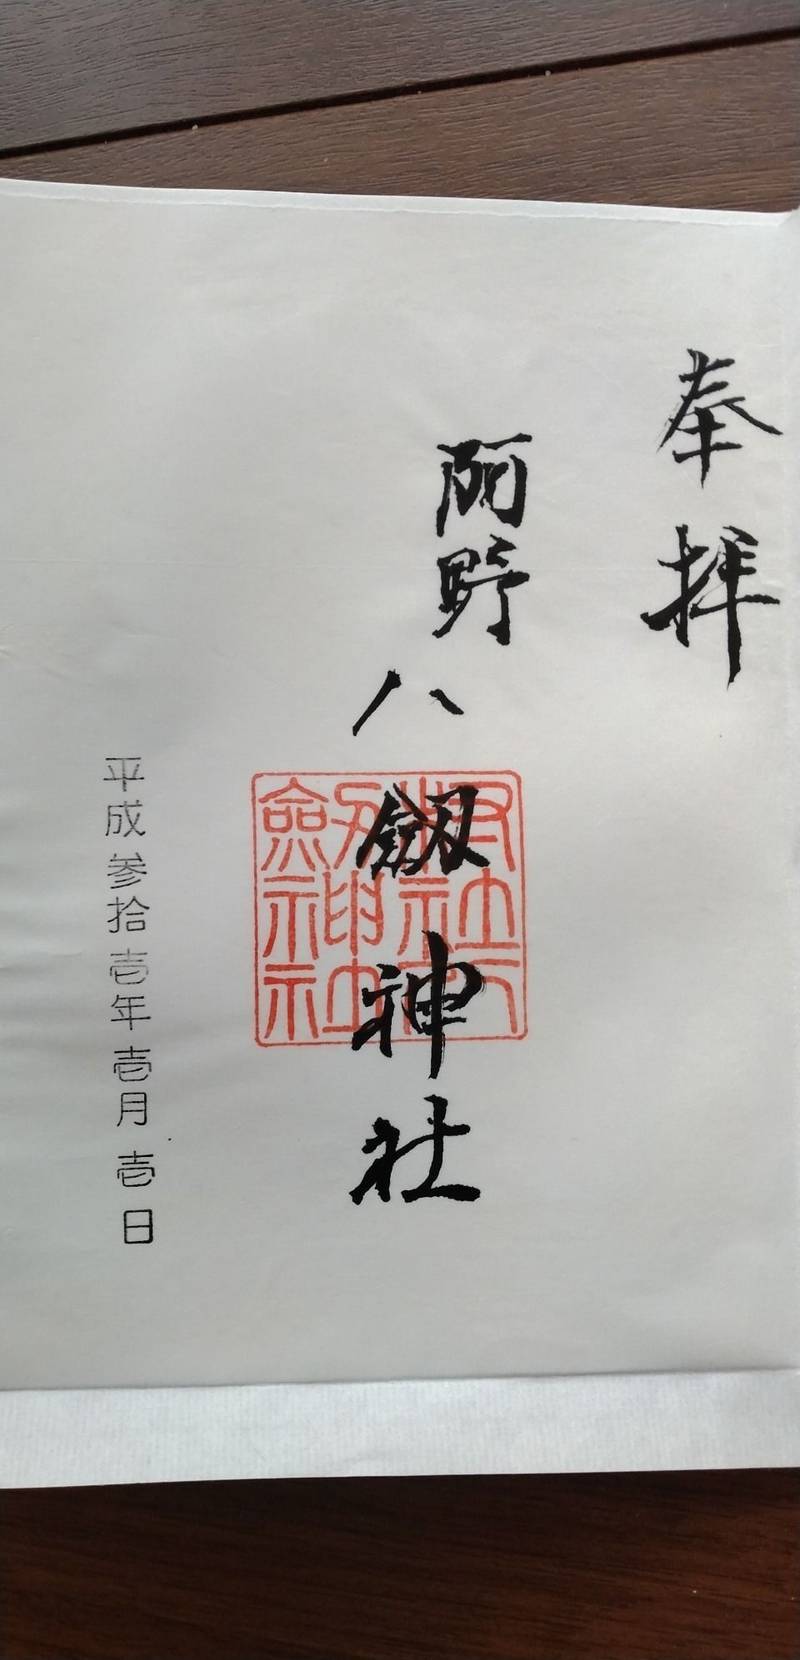 奉拝
阿野
八劔神社
平成参拾壱年壱月壱日